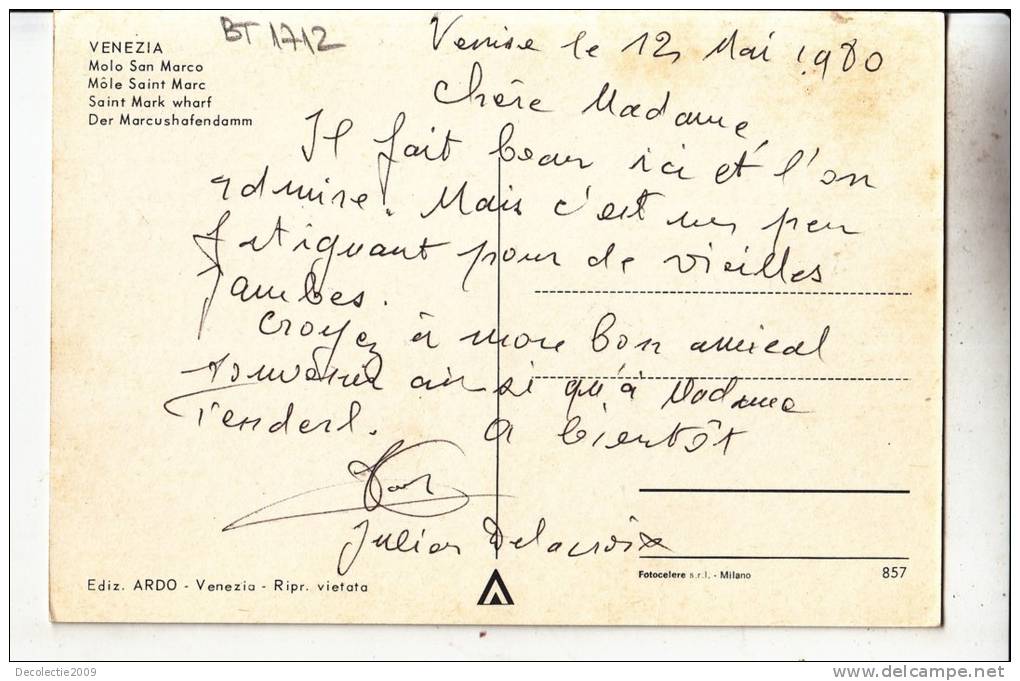 VENEZIA
Molo San Marco
Môle Saint Marc
Saint Mark wharf
Der Marcushafendamm
BT 1712
Venise le 12 Mai 1980
Chère Madame,
Il fait beau ici et l'on
admire. Mais c'est un peu
fatiguant pour de vieilles
jambes.
Croyez à mon bon amical
souvenir ainsi qu'à Madame
Tenderl. A bientôt
Julien Delacroix
Ediz. ARDO - Venezia - Ripr. vietata
Fotocelere s.r.l. - Milano
857
Decolectie2009
delcampe.net